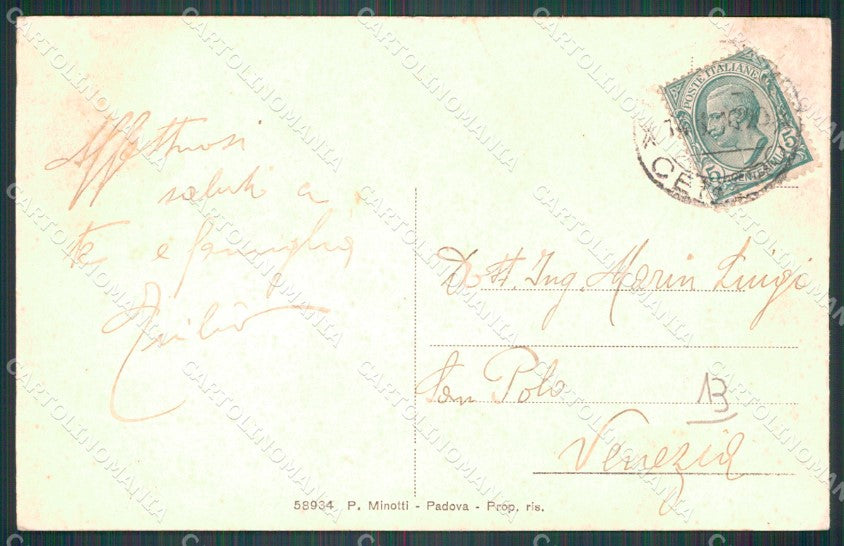 Affettuosi
saluti a
te e famiglia
Giulio
Dott. Ing. Marin Luigi
San Polo
B
Venezia
58934 P. Minotti - Padova - Prop. ris.
POSTE ITALIANE
5 CENTESIMI 5
CARTOLINOMANIA